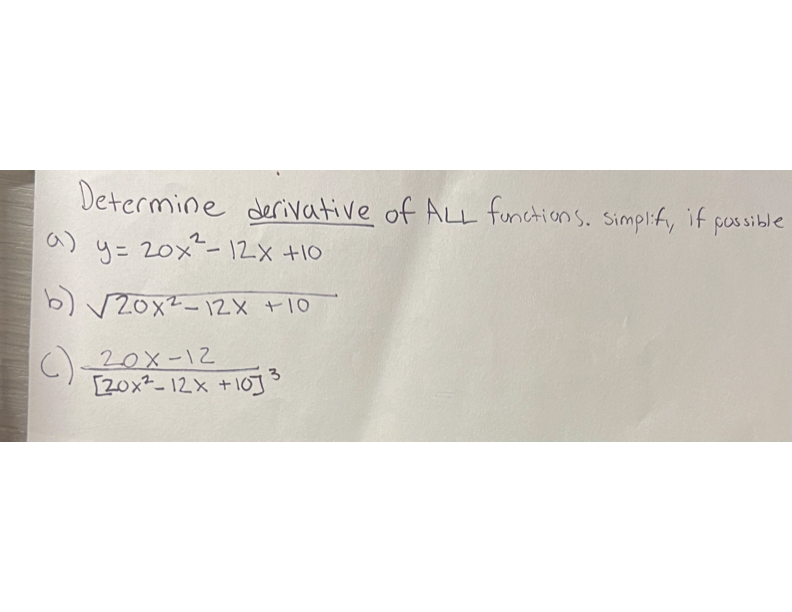 Determine derivative of ALL functions. simplify, if possible
a) y = 20x² - 12x + 10
b) √20x² - 12x + 10
c) 20x - 12
[20x² - 12x + 10]³